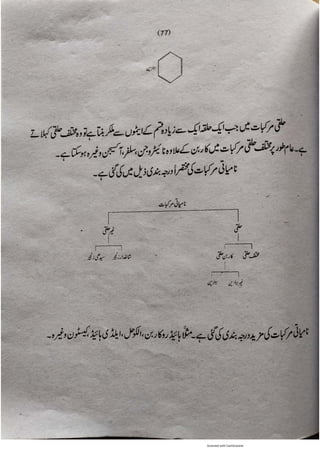 (77)
بینزین
حلقی مرکبات میں جب ایک حلقہ ایک سے زیادہ قسم کے ایٹموں سے ملکر بنتا ہے تو وہ مختلف حلقی کہلاتے
ہے۔ عام طور پر مختلف حلقی مرکبات میں کاربن کے علاوہ نائیٹروجن، سلفر، آکسیجن وغیرہ ہوسکتا ہے۔
نامیاتی مرکبات کی مختصراً درجہ بندی ذیل میں کی گئی ہے۔
نامیاتی مرکبات
حلقی غیر حلقی
مختلف حلقی کاربن حلقی شاخدار زنجیر سیدھی زنجیر
غیر بینزین بینزین
نامیاتی مرکبات کی مزید درجہ بندی کی گئی ہے۔ مثلاً ہائیڈروکاربن، الکوحل، ایلڈی ہائیڈ، کیٹون وغیرہ۔
Scanned with CamScanner